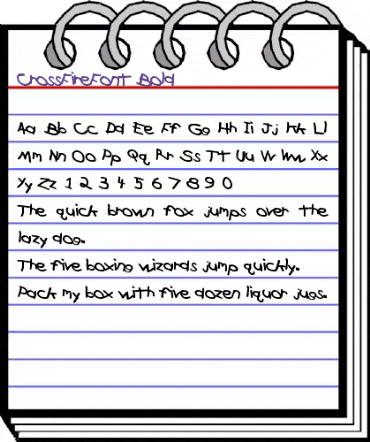 CrossFireFont Bold
Aa Bb Cc Dd Ee Ff Gg Hh Ii Jj Kk Ll
Mm Nn Oo Pp Qq Rr Ss Tt Uu Vv Ww Xx
Yy Zz 1 2 3 4 5 6 7 8 9 0
The quick brown fox jumps over the
lazy dog.
The five boxing wizards jump quickly.
Pack my box with five dozen liquor jugs.